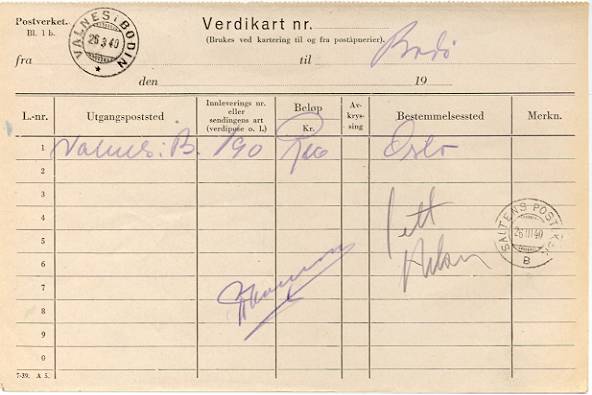 Postverket.
Bl. 1 b.
VALNES i BODIN
26 3 40
Verdikart nr.
(Brukes ved kartering til og fra poståpnerier).
fra til Bodø
den 19
L.-nr. Utgangspoststed Innleverings nr. eller sendingens art (verdipose o. l.) Beløp Kr. Av-krys-sing Bestemmelsessted Merkn.
1 Valnes i B. 190 Oslo
2
3
4
SALTENS POST
26 III 40
B
5
6
7
8
9
0
7-39. A 5.